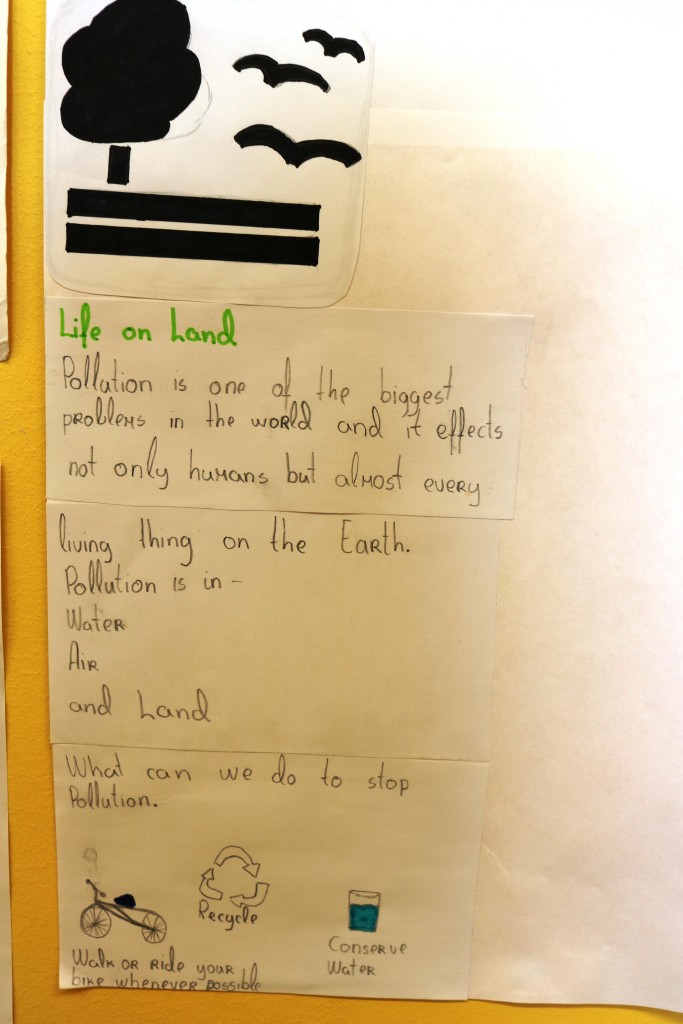 Life on Land
Pollution is one of the biggest
problems in the world and it effects
not only humans but almost every
living thing on the Earth.
Pollution is in -
Water
Air
and Land
What can we do to stop
Pollution.
Recycle
Conserve
Water
Walk or ride your
bike whenever possible